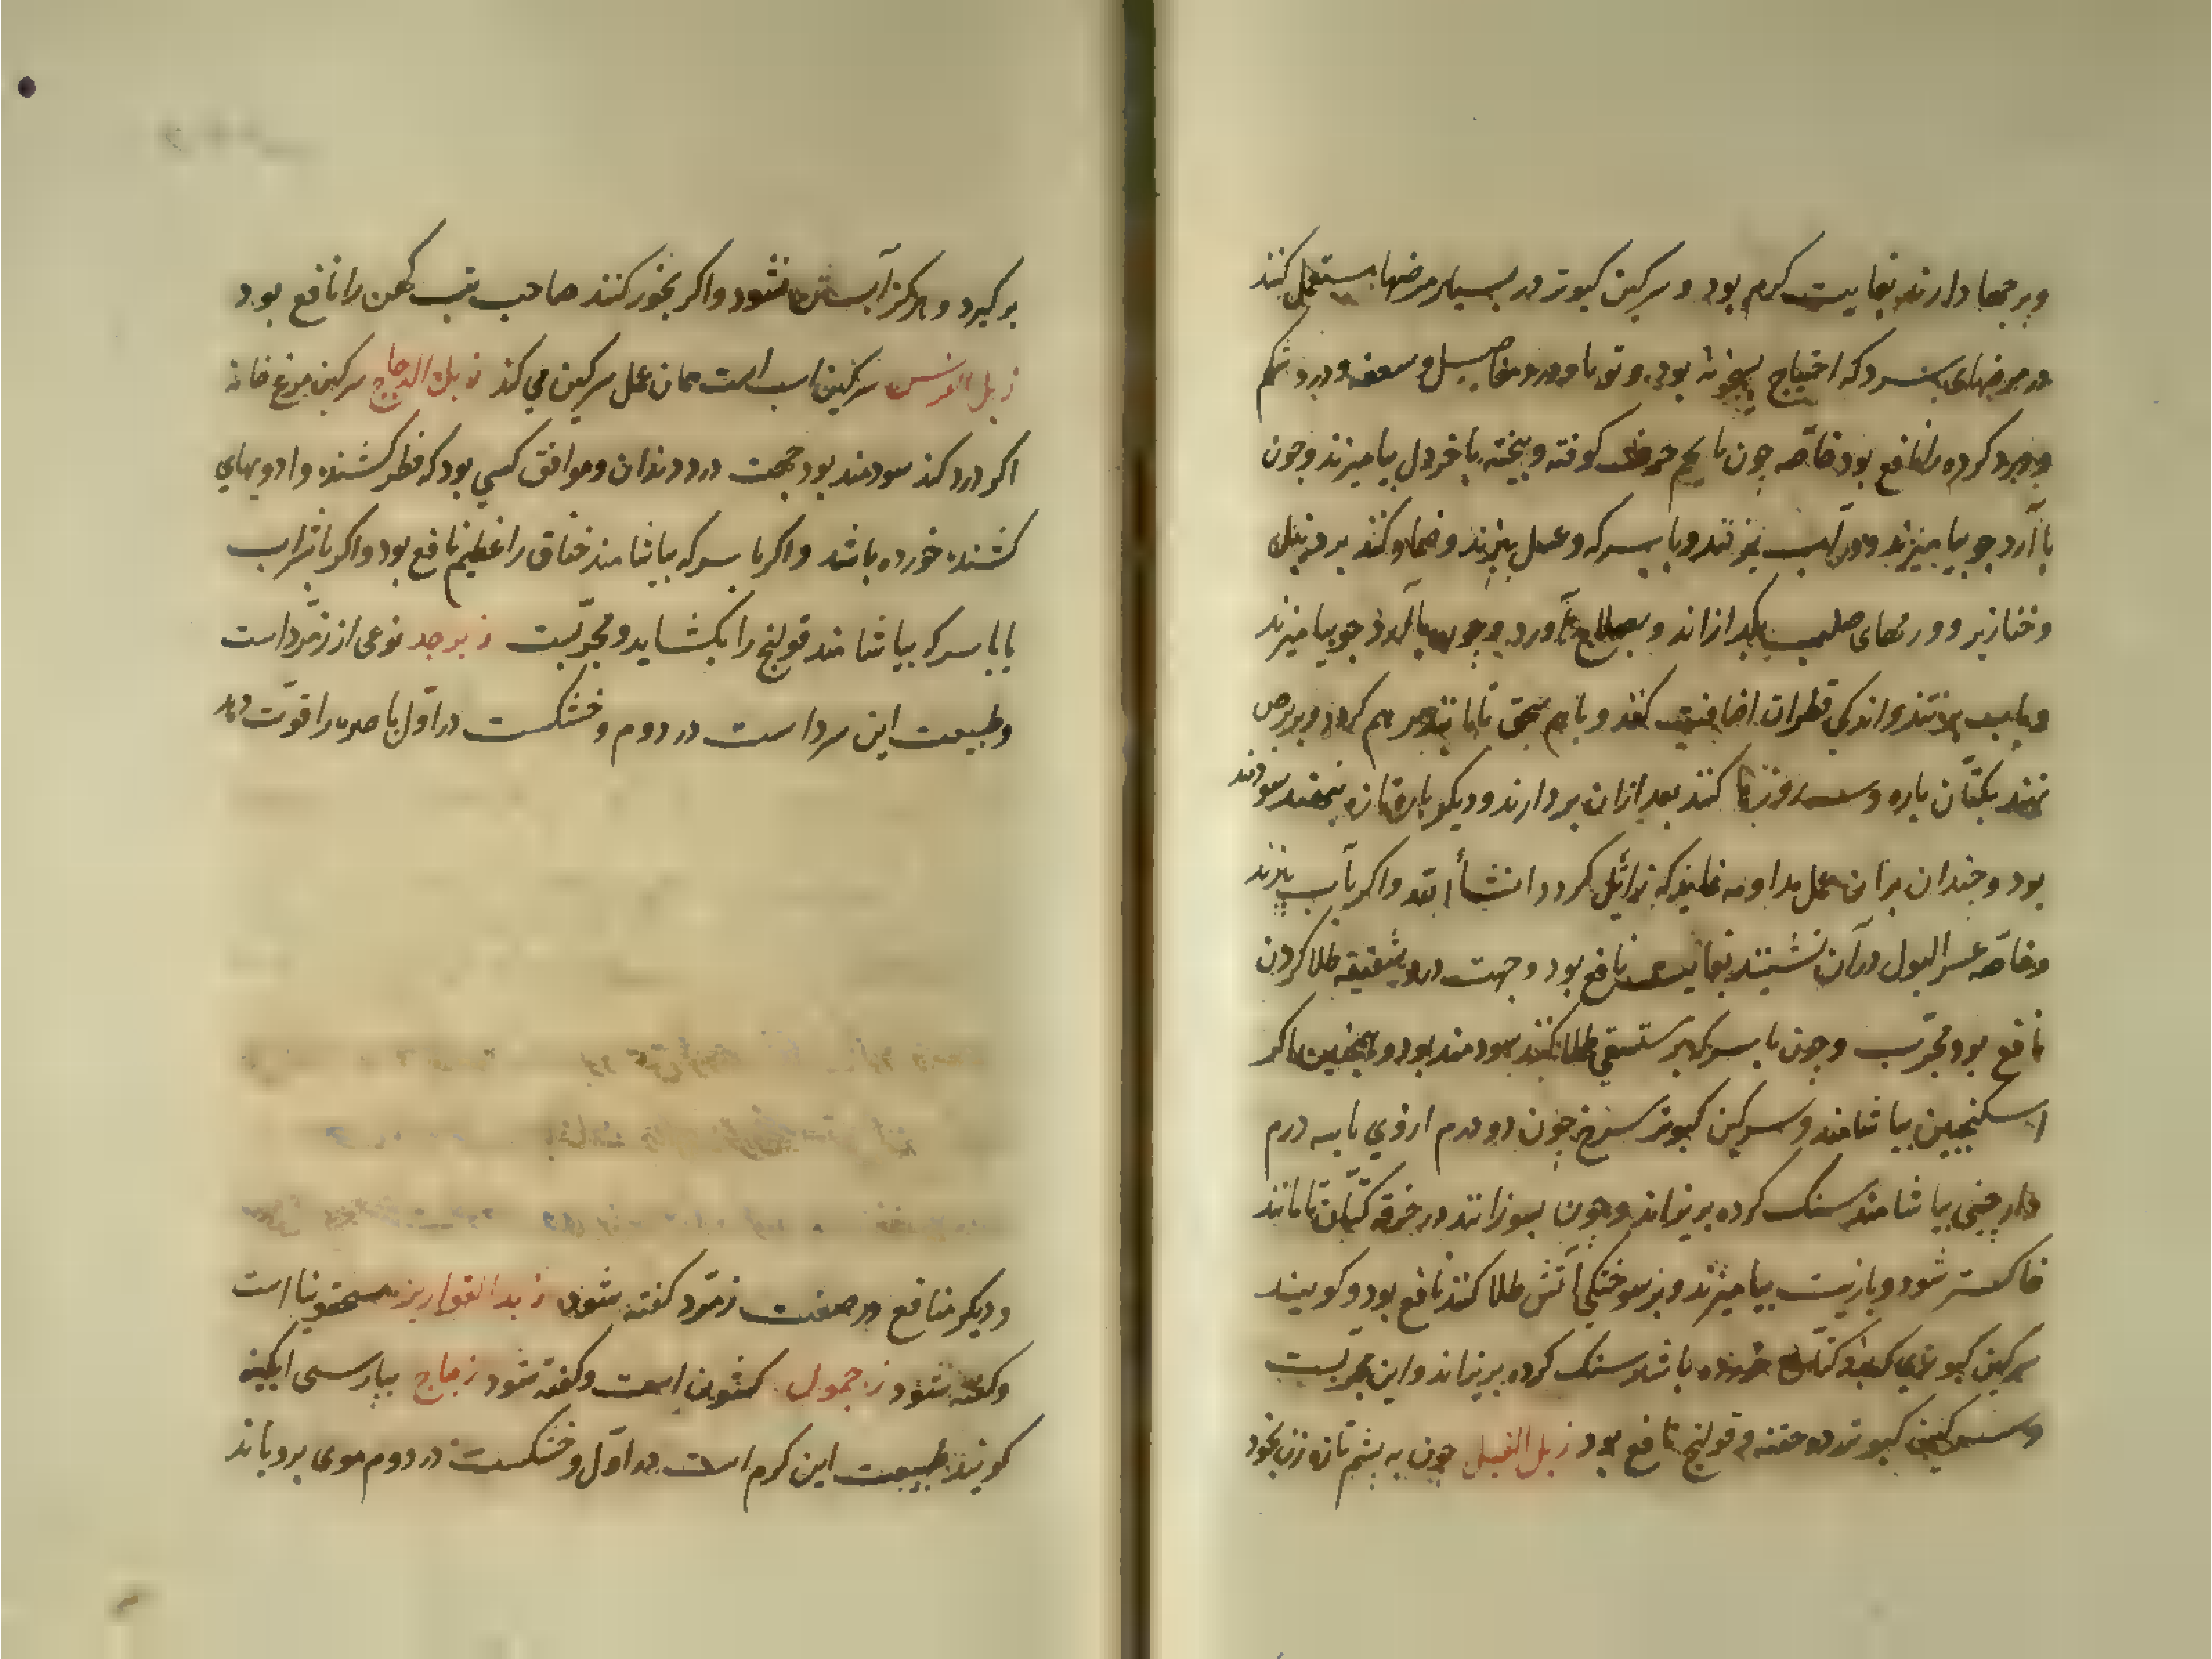 وبرجها دارند بغایت کرم بود و سرکین کبوتر در بسیار مرضها مستعمل کنند
در مرضهای سرد که احتیاج بسخونة بود و توبا و درد مفاصل و سعفه و درد شکم
و درد کرده را نافع بود خاصّه چون با تخم حرف کوفته و بیخته با خردل بیامیزند و چون
با آرد جو بیامیزند و در آب بپزند و با سرکه و عسل بپزند و ضماد کنند بر دمل
و خنازیر و ورمهای صلب بکدازاند و بصلاح آورد و چون با آرد جو بیامیزند
و باب بپزند و اندکی قطران اضافت کنند و باهم سحق تا مانند مرهم کردد و بر برص
نهند بکتّان پاره و سه روز رها کنند بعد ازان بردارند و دیکر باره تازه بنهند سودمند
بود و چندان برین عمل مداومه نمایند که زایل کردد انشأ الله و اکر بآب بپزند
و خاصّه عسر البول در آن نشینند بغایت نافع بود و جهت درد شقیقه طلا کردن
نافع بود مجرّب و چون با سرکه بر مستسقی طلا کنند سودمند بود و همچنین اکر
اسکنجبین بیاشامند و سرکین کبوتر سرخ چون دو درم ازوی با سه درم
دارچینی بیاشامند سنک کرده بریزاند و چون بسوزانند در خرقه کتّان تا مانند
خاکستر شود و بازیت بیامیزند و بر سوختکی آتش طلا کنند نافع بود و کویند
سرکین کبوتری که بذر کتان خورده باشد سنک کرده بریزاند و این مجرّبست
و سرکین کبوتر در حقنه قولنج نافع بود زبل الفیل چون به پشم تازه زن بخود
برکیرد و هرکز آبستن نشود و اکر بخور کنند صاحب تب کهن را نافع بود
زبل الفرس سرکین اسب است همان عمل سرکین می کند زبل الدجاج سرکین مرغ خانه
اکر درد کند سودمند بود جهت درد دندان و موافق کسی بود که فطر کشنده و ادویهای
کشنده خورده باشد و اکر با سرکه بیاشامند خناق را عظیم نافع بود و اکر با شراب
یا با سرکه بیاشامند قولنج را بکشاید و مجرّبست زبرجد نوعی از زمّرد است
و طبیعت این سرد است در دوم و خشکست در اوّل باصره را قوّت دهد
و دیکر منافع در صفت زمّرد کفته شود زبد القواریر مسحقونیا است
و کفته شود زجمول کشوث است و کفته شود زجاج بپارسی ابکینه
کویند طبیعت این کرم است در اوّل و خشکست در دوم موی برویاند